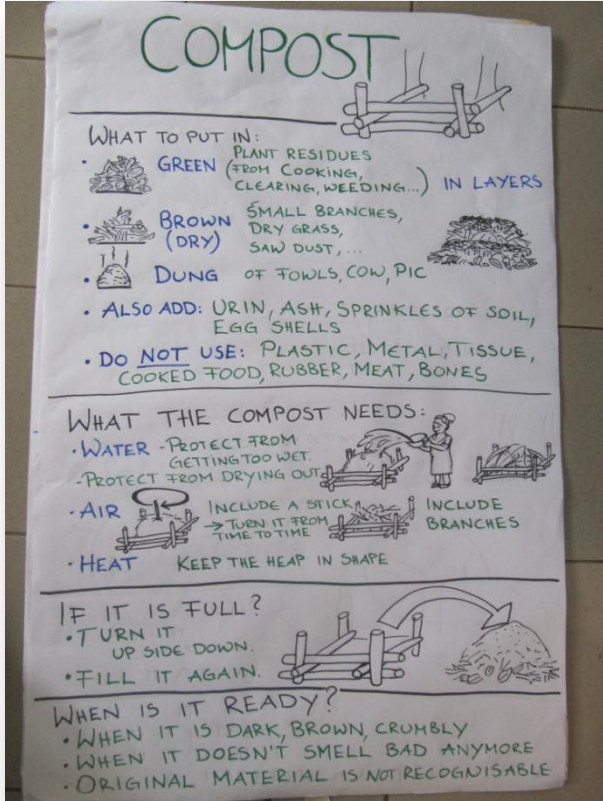 COMPOST
WHAT TO PUT IN:
• GREEN (PLANT RESIDUES
FROM COOKING,
CLEARING, WEEDING...) IN LAYERS
• BROWN SMALL BRANCHES,
(DRY) DRY GRASS,
SAW DUST, ...
• DUNG OF FOWLS, COW, PIC
• ALSO ADD: URIN, ASH, SPRINKLES OF SOIL,
EGG SHELLS
• DO NOT USE: PLASTIC, METAL, TISSUE,
COOKED FOOD, RUBBER, MEAT, BONES
WHAT THE COMPOST NEEDS:
• WATER - PROTECT FROM
GETTING TOO WET.
- PROTECT FROM DRYING OUT
• AIR INCLUDE A STICK
→ TURN IT FROM
TIME TO TIME
INCLUDE
BRANCHES
• HEAT KEEP THE HEAP IN SHAPE
IF IT IS FULL?
• TURN IT
UP SIDE DOWN.
• FILL IT AGAIN.
WHEN IS IT READY?
• WHEN IT IS DARK, BROWN, CRUMBLY
• WHEN IT DOESN'T SMELL BAD ANYMORE
• ORIGINAL MATERIAL IS NOT RECOGNISABLE